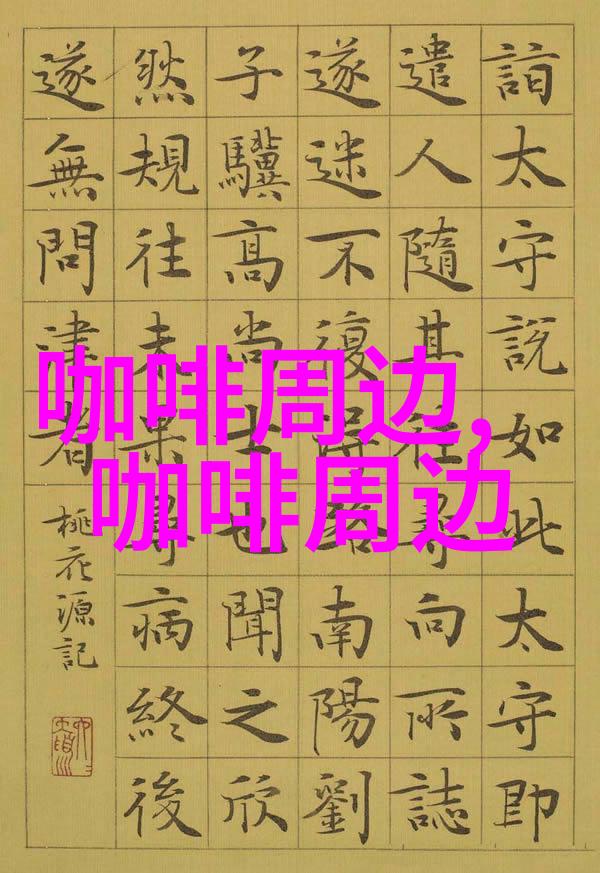 詣太守說如此太守即
遣人隨其往尋向所誌
遂迷不復得路南陽劉
子驥高尚士也聞之欣
然規往未果尋病終後
遂無問津者
桃花源記
咖啡周边,
咖啡周边